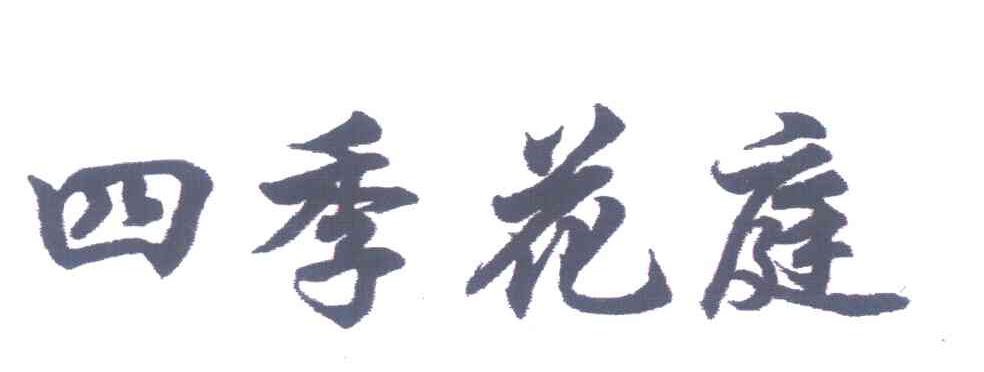 四季花庭